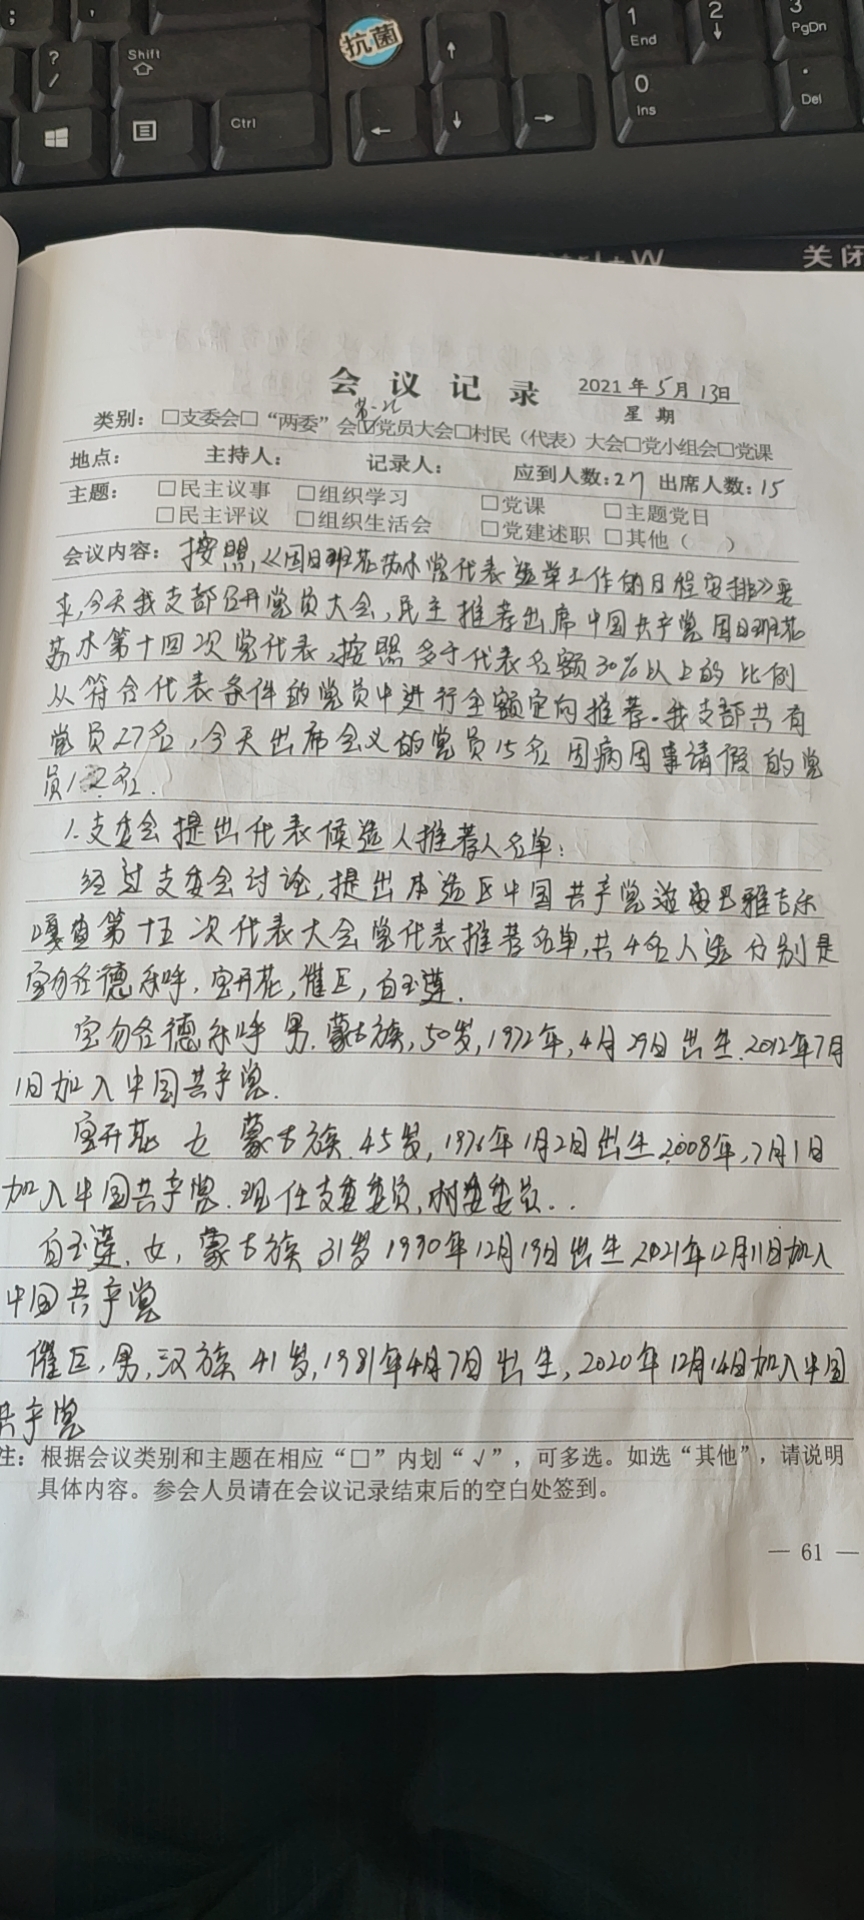 ;
?
/
Shift
Ctrl
抗菌
1
End
2
3
PgDn
0
Ins
.
Del
rl+W
关闭
会议记录
2021年5月13日
星期
类别：□支委会□“两委”会☑党员大会□村民（代表）大会□党小组会□党课
地点： 主持人： 记录人： 应到人数：27 出席人数：15
主题：□民主议事 □组织学习 □党课 □主题党日
□民主评议 □组织生活会 □党建述职 □其他（ ）
会议内容：按照《因日班花苏木党代表选举工作的日程安排》要
求，今天我支部召开党员大会，民主推荐出席中国共产党因日班花
苏木第十四次党代表，按照多于代表名额30%以上的比例
从符合代表条件的党员中进行全额定向推荐。我支部共有
党员27名，今天出席会义的党员15名 因病因事请假的党
员12名.
1.支委会提出代表候选人推荐人名单：
经过支委会讨论，提出本选区中国共产党巴雅吉尔
嘎查第十五次代表大会党代表推荐名单，共4名人选 分别是
德，宝开花，催区，白玉莲.
德 男.蒙古族，50岁，1972年，4月29日出生.2012年7月
1日加入中国共产党.
宝开花 女 蒙古族.45岁，1976年1月2日出生2008年，7月1日
加入中国共产党.现任支委委员，村委委员..
白玉莲.女，蒙古族 31岁 1990年12月19日出生 2021年12月11日加入
中国共产党
催区，男，汉族 41岁，1981年4月7日出生，2020年12月14日加入中国
共产党
注：根据会议类别和主题在相应“□”内划“√”，可多选。如选“其他”，请说明
具体内容。参会人员请在会议记录结束后的空白处签到。
— 61 —